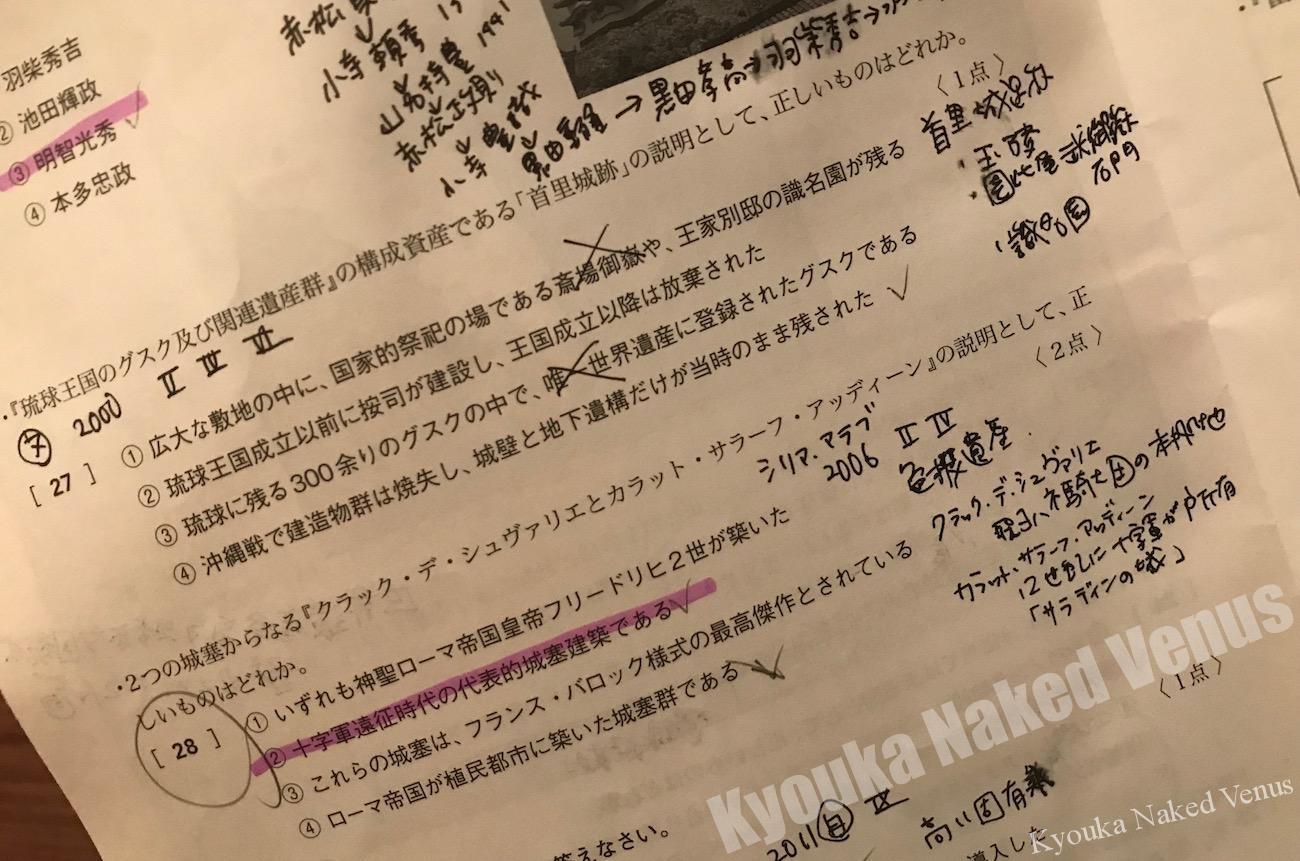 羽柴秀吉
② 池田輝政
③ 明智光秀
④ 本多忠政
小寺頼秀
山名持豊
赤松正則
小寺豊職
黒田孝高→羽柴秀吉→
・『琉球王国のグスク及び関連遺産群』の構成資産である「首里城跡」の説明として、正しいものはどれか。
〈1点〉
2000 Ⅱ Ⅲ Ⅵ
[ 27 ]
① 広大な敷地の中に、国家的祭祀の場である斎場御嶽や、王家別邸の識名園が残る
② 琉球王国成立以前に按司が建設し、王国成立以降は放棄された
③ 琉球に残る300余りのグスクの中で、唯一世界遺産に登録されたグスクである
④ 沖縄戦で建造物群は焼失し、城壁と地下遺構だけが当時のまま残された
首里城
・玉陵
・園比屋武御嶽
石門
・識名園
・2つの城塞からなる『クラック・デ・シュヴァリエとカラット・サラーフ・アッディーン』の説明として、正
しいものはどれか。
〈2点〉
[ 28 ]
① いずれも神聖ローマ帝国皇帝フリードリヒ2世が築いた
② 十字軍遠征時代の代表的城塞建築である
③ これらの城塞は、フランス・バロック様式の最高傑作とされている
④ ローマ帝国が植民都市に築いた城塞群である
シリア・アラブ
2006 Ⅱ Ⅳ
危機遺産
クラック・デ・シュヴァリエ
聖ヨハネ騎士団の本拠地
カラット・サラーフ・アッディーン
12世紀に十字軍が占有
「サラディンの城」
〈1点〉
答えなさい。
2011
高い固有率
導入した
Kyouka Naked Venus
Kyouka Naked Venus